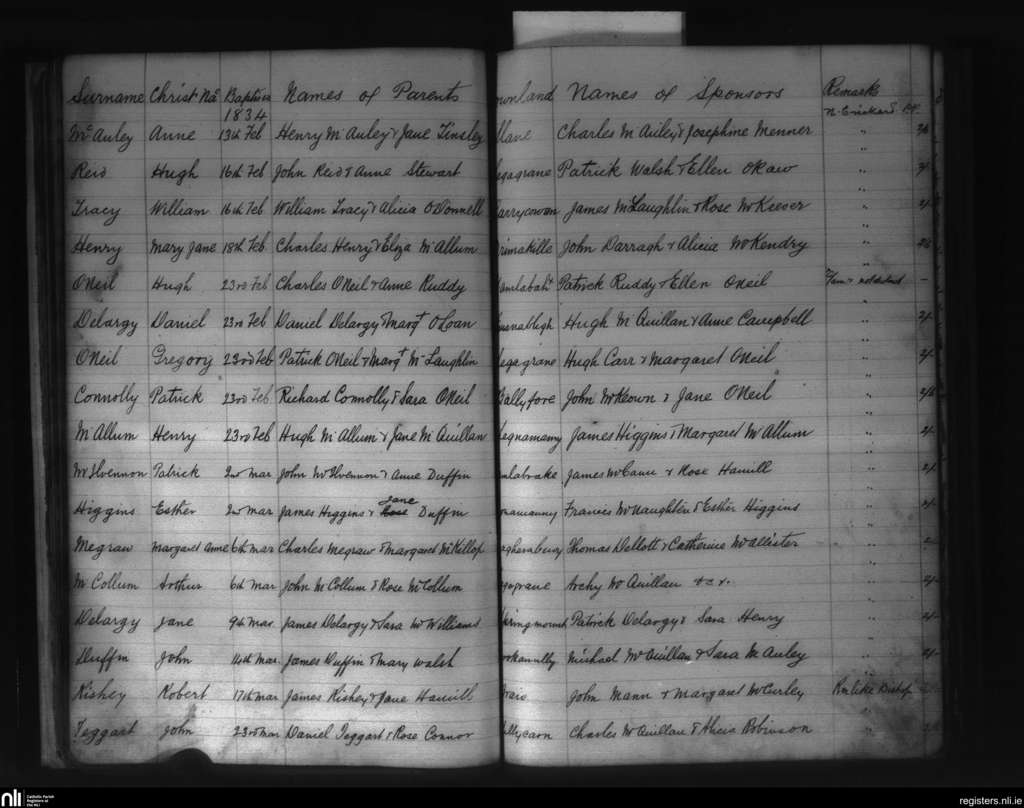 Surname Christ Na. Baptism Names of Parents ownland Names of Sponsors Remarks
1834
McAuley Anne 13th Feb Henry McAuley & Jane Tinsley Charles McAuley & Josephine Menner
Reid Hugh 16th Feb John Reid & Anne Stewart egagrane Patrick Walsh & Ellen OKaw
Tracy William 16th Feb William Tracy & Alicia ODonnell arrycowan James McLaughlin & Rose McKeever
Henry Mary Jane 18th Feb Charles Henry & Eliza McAllum rimakille John Darragh & Alicia McKendry
ONeil Hugh 23rd Feb Charles ONeil & Anne Ruddy Patrick Ruddy & Ellen ONeil
Delargy Daniel 23rd Feb Daniel Delargy & Margt OLoan Hugh McQuillan & Anne Campbell
ONeil Gregory 23rd Feb Patrick ONeil & Margt McLaughlin egagrane Hugh Carr & Margaret ONeil
Connolly Patrick 23rd Feb Richard Connolly & Sara ONeil allyfore John McKeown & Jane ONeil
McAllum Henry 23rd Feb Hugh McAllum & Jane McQuillan egnamamy James Higgins & Margaret McAllum
McIlvennon Patrick 2nd Mar John McIlvennon & Anne Duffin James McCann & Rose Hamill
Jane
Higgins Esther 2nd Mar James Higgins & Rose Duffin Francis McNaughten & Esther Higgins
Megraw Margaret Anne 6th Mar Charles Megraw & Margaret McKillop Thomas Dellott & Catherine McAllister
McCollum Arthur 6th Mar John McCollum & Rose McCollum Archy McQuillan &c &.
Delargy Jane 9th Mar James Delargy & Sara McWilliams Patrick Delargy & Sara Henry
Duffin John 14th Mar James Duffin & Mary Walsh Michael McQuillan & Sara McAuley
Kishey Robert 17th Mar James Kishey & Jane Hamill John Mann & Margaret McCurley
Teggart John 23rd Mar Daniel Teggart & Rose Connor llycarn Charles McQuillan & Alicia Robinson
nli Catholic Parish Registers at the NLI
registers.nli.ie